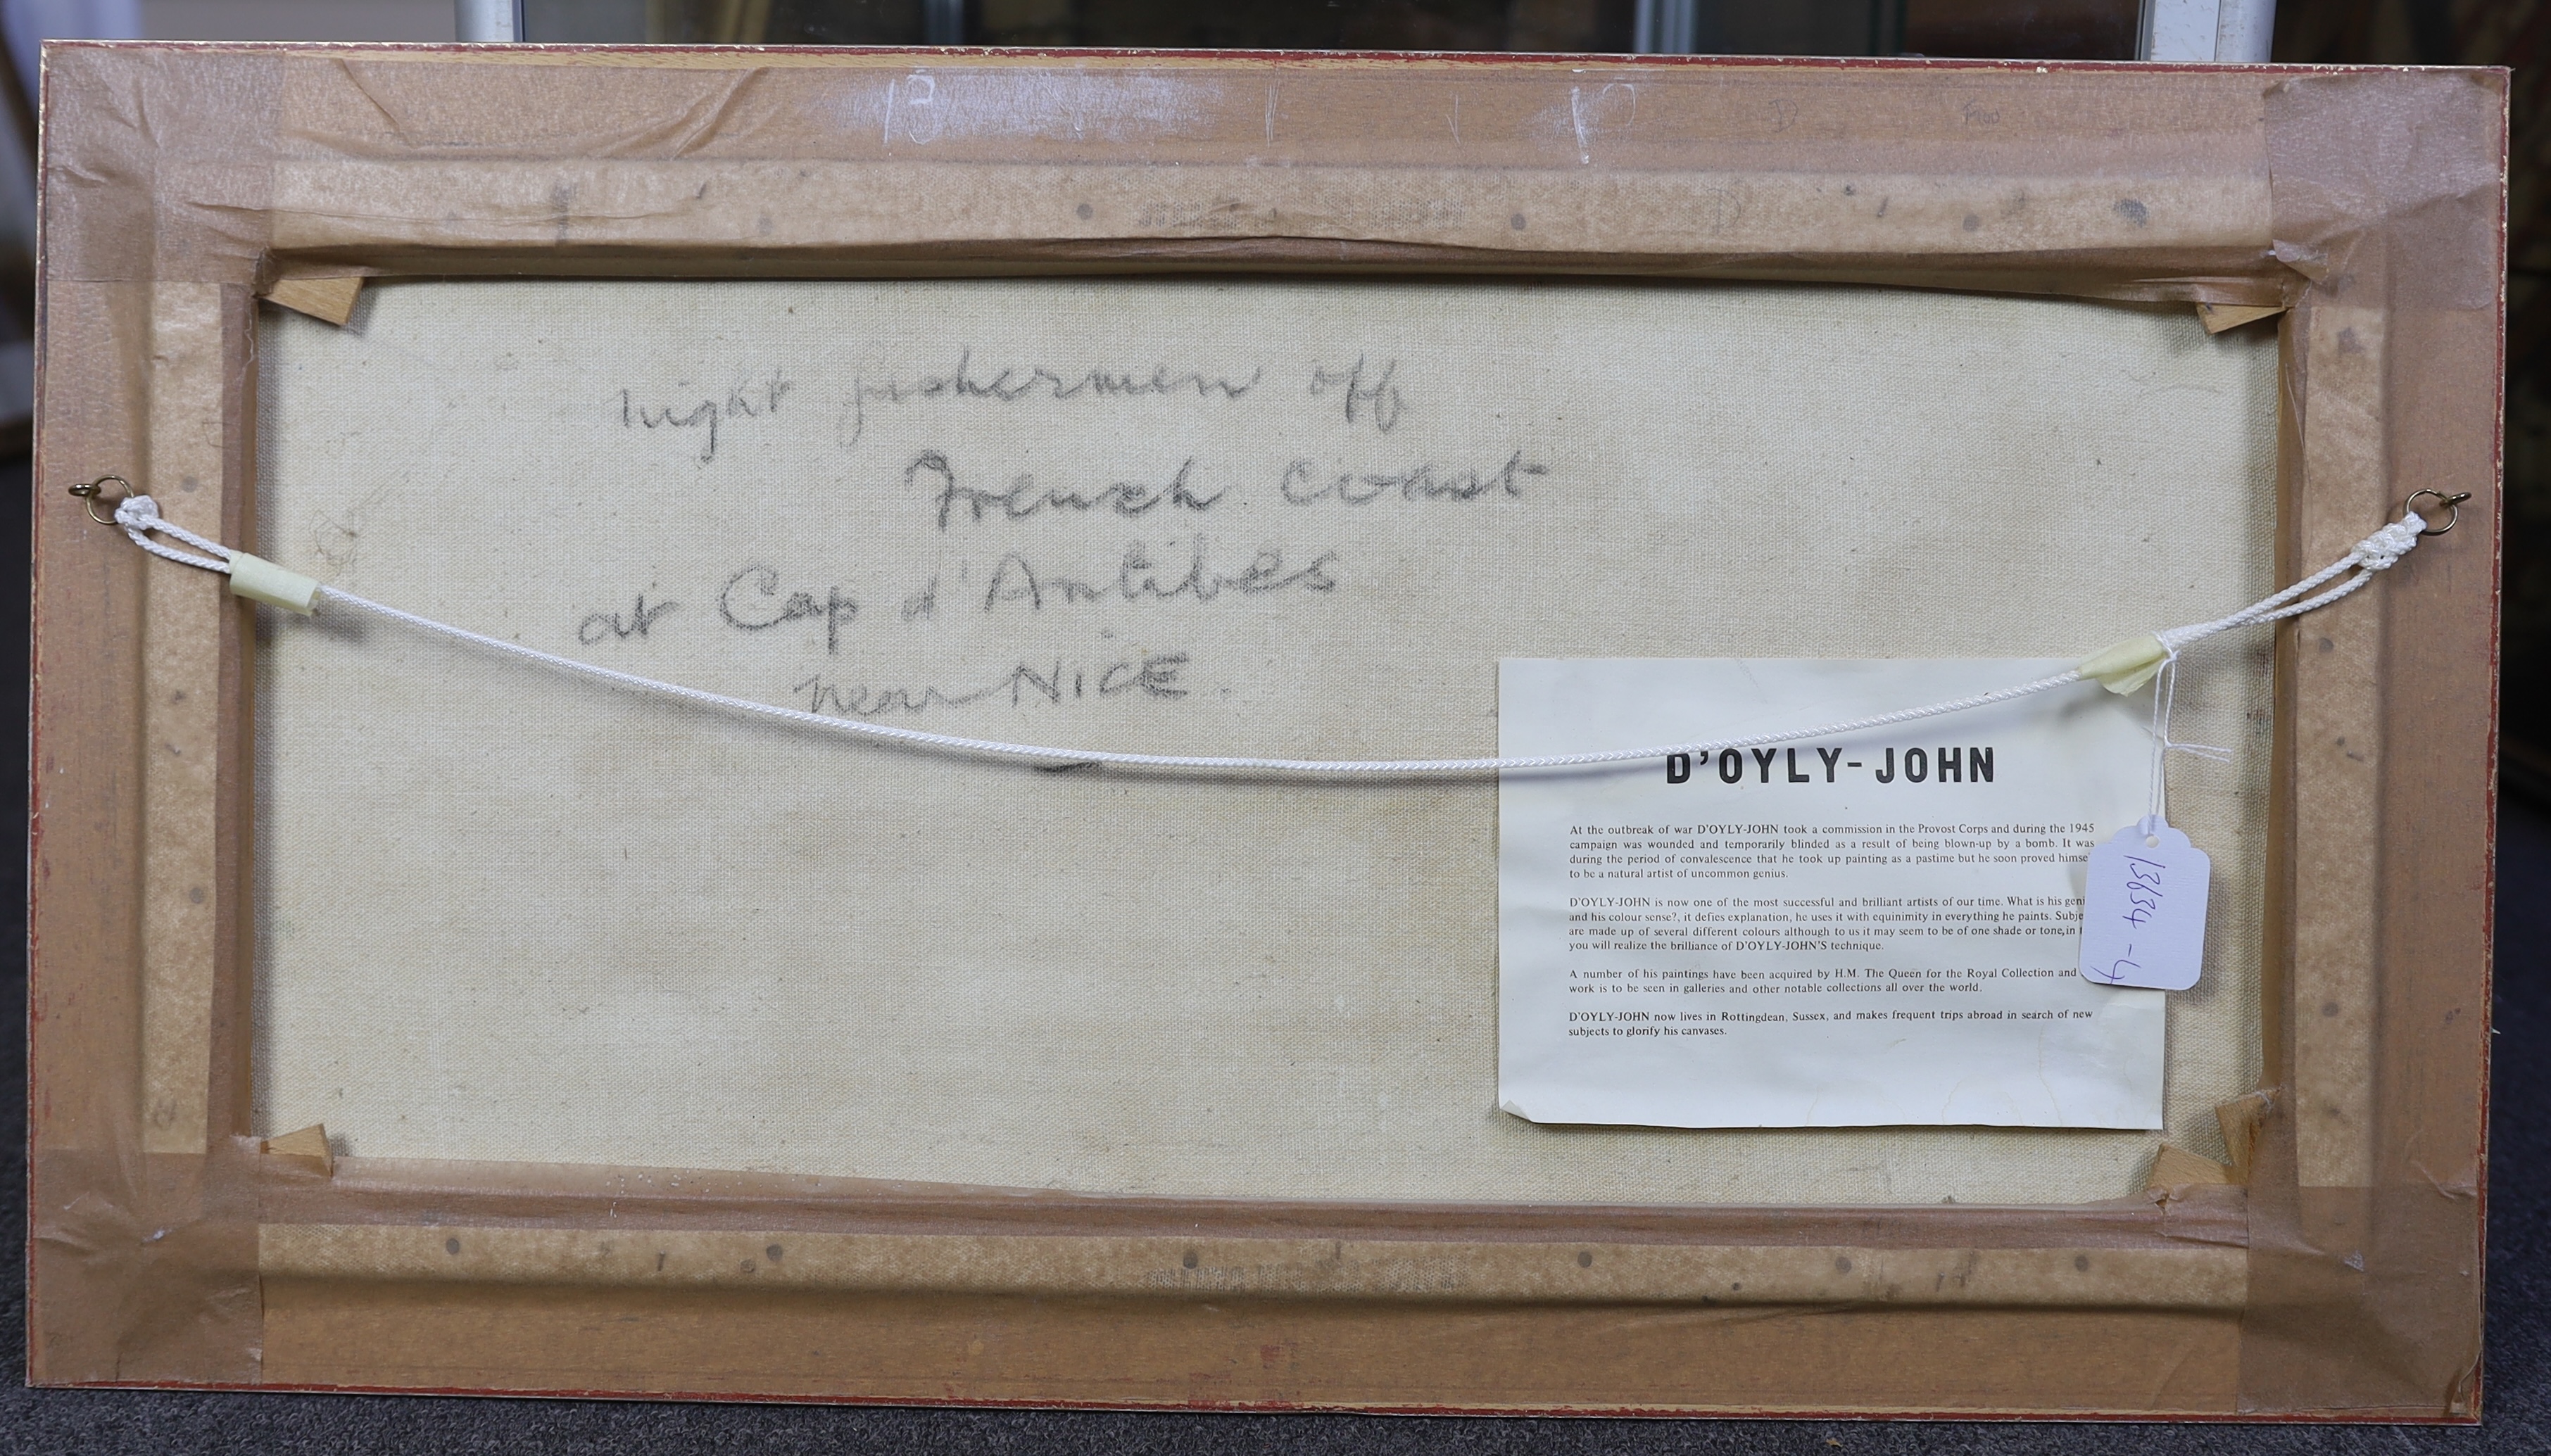 night fishermen off
French coast
at Cap d'Antibes
near NiCE.
D'OYLY-JOHN
At the outbreak of war D'OYLY-JOHN took a commission in the Provost Corps and during the 1945
campaign was wounded and temporarily blinded as a result of being blown-up by a bomb. It was
during the period of convalescence that he took up painting as a pastime but he soon proved himse
to be a natural artist of uncommon genius.
D'OYLY-JOHN is now one of the most successful and brilliant artists of our time. What is his geni
and his colour sense?, it defies explanation, he uses it with equinimity in everything he paints. Subje
are made up of several different colours although to us it may seem to be of one shade or tone, in
you will realize the brilliance of D'OYLY-JOHN'S technique.
A number of his paintings have been acquired by H.M. The Queen for the Royal Collection and
work is to be seen in galleries and other notable collections all over the world.
D'OYLY-JOHN now lives in Rottingdean, Sussex, and makes frequent trips abroad in search of new
subjects to glorify his canvases.
13634-4